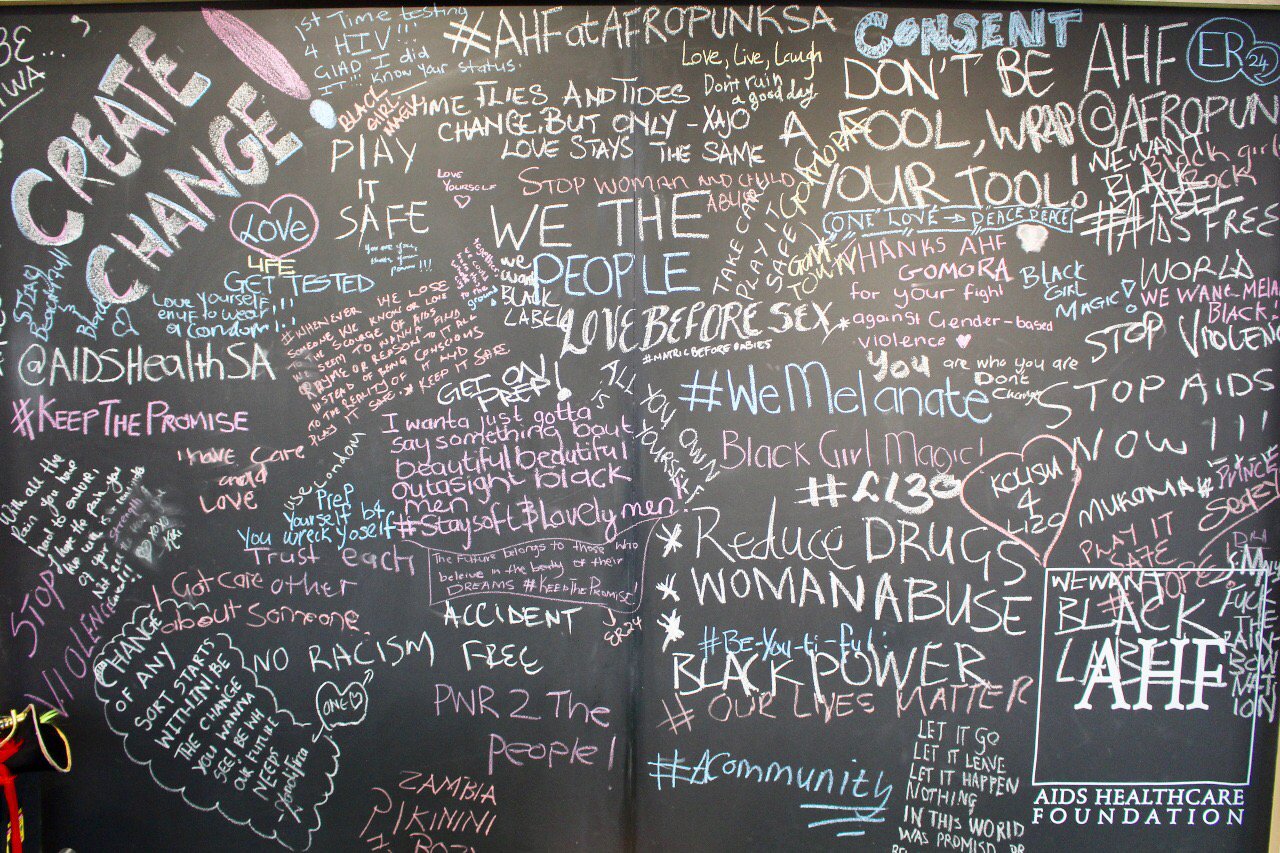 CREATE
CHANGE
1st Time testing
4 HIV!!!
GLAD I did
IT!!! Know your status!
#AHFatAFROPUNKSA
Love, Live, Laugh
Don't ruin
a good day
CONSENT
DON'T BE
A FOOL, WRAP
YOUR TOOL!
AHF
ER24
@AFROPUN
BLACK
GIRL
MAGIC
TIME FLIES AND TIDES
CHANGE, BUT ONLY - XAJO
LOVE STAYS THE SAME
PLAY
IT
SAFE
LOVE
YOURSELF
STOP WOMAN AND CHILD
ABUSE
WE THE
PEOPLE
we
want
BLACK
LABEL
TAKE CARE
PLAY IT
SAFE
ONE LOVE → PEACE PEACE
WE WANT
BLACK
LABEL
Black girls
Rock
#AIDS FREE
WORLD
LOVE
LIFE
GET TESTED
Love yourself
enuf to wear
a condom!!!
STAY
Beautiful
Black
@AIDSHealthSA
#KEEPTHEPROMISE
WHENEVER WE LOSE
SOMEONE WE KNOW OR LOVE
TO THE SCOURGE OF AIDS
KEEP IT SAFE
PLAY IT SAFE.
LOVE BEFORE SEX
#MATRICBEFOREBABIES
GET ON
PREP!
ALL
YOU OWN
IS
YOURSELF
THANKS AHF
GOMORA
for your fight
against Gender-based
violence
BLACK
GIRL
MAGIC!
WE WANT MELA
BLACK.
STOP VIOLENC
You are who you are
Dont
Change
#WeMelanate
STOP AIDS
NOW!!!
I wanta just gotta
say something bout
beautiful beautiful
outasight black
men
#Staysoft&lovelymen!
BLACK GIRL MAGIC!
#L130
KOLISM
4
L120
MUKOMA
PLAY IT
SAFE
I have care
and
LOVE
use Condom
PREP
yourself b4
You wreck yoself
Trust each
other
With all the
pain you have
had to endure,
STOP
VIOLENCE
I Got care
about Someone.
The future belongs to those who
beleive in the beauty of their
DREAMS #KEEPTHEPROMISE
ER24
ACCIDENT
FREE
* Reduce DRUGS
* WOMAN ABUSE
*
#Be-You-ti-ful!
BLACK POWER
# OUR LIVES MATTER
CHANGE
OF ANY
SORT STARTS
WITHIN! BE
THE CHANGE
YOU WANNA
SEE! BE WH
OUR FUTURE
NEEDS
ONE
NO RACISM
PWR 2 The
people!
#ACommunity
ZAMBIA
PIKININI
LET IT GO
LET IT LEAVE
LET IT HAPPEN
NOTHING
IN THIS WORLD
WAS PROMISD OR
WE WANT
BLACK
LABEL
AHF
AIDS HEALTHCARE
FOUNDATION